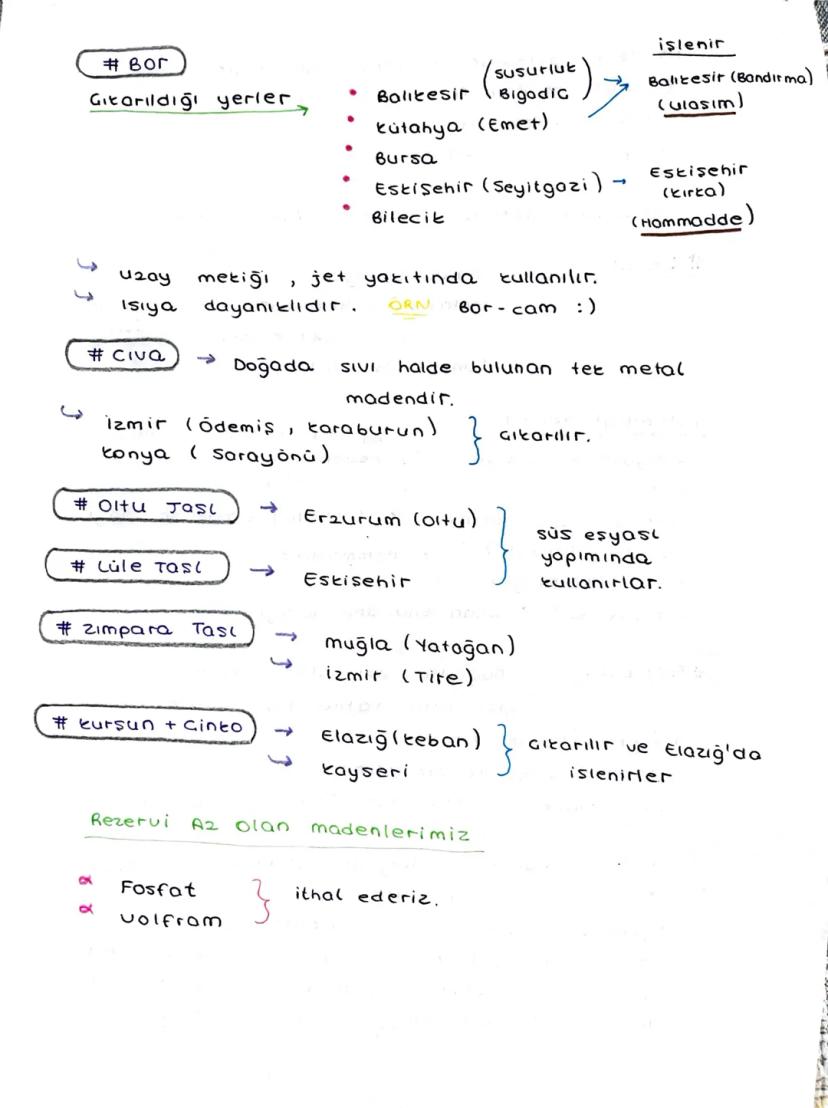 # Bor
işlenir
Çıkarıldığı yerler
• Balıkesir (Susurluk Bigadiç) → Balıkesir (Bandırma) (ulaşım)
• Kütahya (Emet)
• Bursa
• Eskişehir (Seyitgazi) → Eskişehir (Kırka) (Hammadde)
• Bilecik
↳ Uzay mekiği, jet yakıtında kullanılır.
↳ Isıya dayanıklıdır. ÖRN Bor-cam :)
# Cıva → Doğada sıvı halde bulunan tek metal
madendir.
↳ İzmir (Ödemiş, Karaburun)
Konya (Sarayönü) } Çıkarılır.
# Oltu Taşı → Erzurum (Oltu)
# Lüle Taşı → Eskişehir
} süs eşyası
yapımında
kullanırlar.
# Zımpara Taşı → Muğla (Yatağan)
↳ İzmir (Tire)
# Kurşun + Çinko → Elazığ (Keban)
↳ Kayseri
} Çıkarılır ve Elazığ'da
işlenirler
Rezervi Az olan madenlerimiz
∝ Fosfat
∝ Volfram
} ithal ederiz.